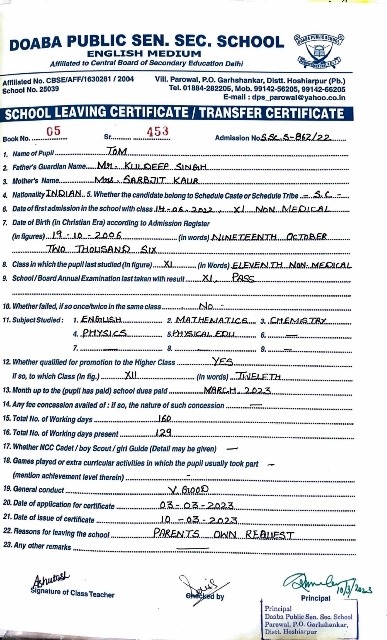 DOABA PUBLIC SEN. SEC. SCHOOL
ENGLISH MEDIUM
Affiliated to Central Board of Secondary Education Delhi
Affiliated No. CBSE/AFF/1630281 / 2004 Vill. Parowal, P.O. Garhshankar, Distt. Hoshiarpur (Pb.)
School No. 25039 Tel. 01884-282205, Mob. 99142-56205, 99142-66205
E-mail : dps_parowal@yahoo.co.in
SCHOOL LEAVING CERTIFICATE / TRANSFER CERTIFICATE
Book No. 05 Sr. 453 Admission No. S.Sc.S-862/22
1. Name of Pupil TOM
2. Father's/Guardian Name MR. KULDEEP SINGH
3. Mother's Name MRS. SARBJIT KAUR
4. Nationality INDIAN 5. Whether the candidate belong to Schedule Caste or Schedule Tribe - S.C -
6. Date of first admission in the school with class 14-06-2022, XI NON MEDICAL
7. Date of Birth (in Christian Era) according to Admission Register
(in figures) 19-10-2006 (in words) NINETEENTH OCTOBER
TWO THOUSAND SIX
8. Class in which the pupil last studied (In figure) XI (in Words) ELEVENTH NON-MEDICAL
9. School / Board Annual Examination last taken with result XI, PASS
10. Whether failed, if so once/twice in the same class No
11. Subject Studied : 1. ENGLISH 2. MATHEMATICS 3. CHEMISTRY
4. PHYSICS 5. PHYSICAL EDU 6. —
7. — 8. — 9. —
12. Whether qualified for promotion to the Higher Class YES
If so, to which Class (in fig.) XII (in words) TWELFTH
13. Month up to the (pupil has paid) school dues paid MARCH, 2023
14. Any fee concession availed of : if so, the nature of such concession —
15. Total No. of Working days 160
16. Total No. of Working days present 129
17. Whether NCC Cadet / boy Scout / girl Guide (Detail may be given) —
18. Games played or extra curricular activities in which the pupil usually took part —
(mention achievement level therein) -
19. General conduct V. GOOD
20. Date of application for certificate 03-03-2023
21. Date of issue of certificate 10-03-2023
22. Reasons for leaving the school PARENTS OWN REQUEST
23. Any other remarks —
10/3/2023
Signature of Class Teacher Checked by Principal
Principal
Doaba Public Sen. Sec. School
Parowal, P.O. Garhshankar,
Distt. Hoshiarpur